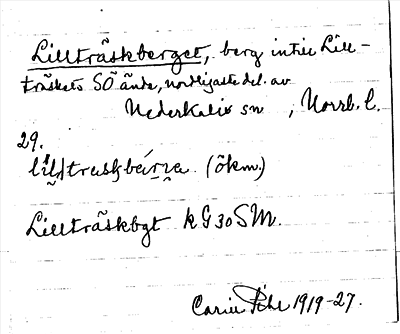 Lillträskberget, berg intill Lill-
träskets SÖ ände, nordligaste del. av
Nederkalix sn, Norrb. l.
29.
(ökm.)
Lillträskbgt k G30SM.
Carin Pihl 1919-27.